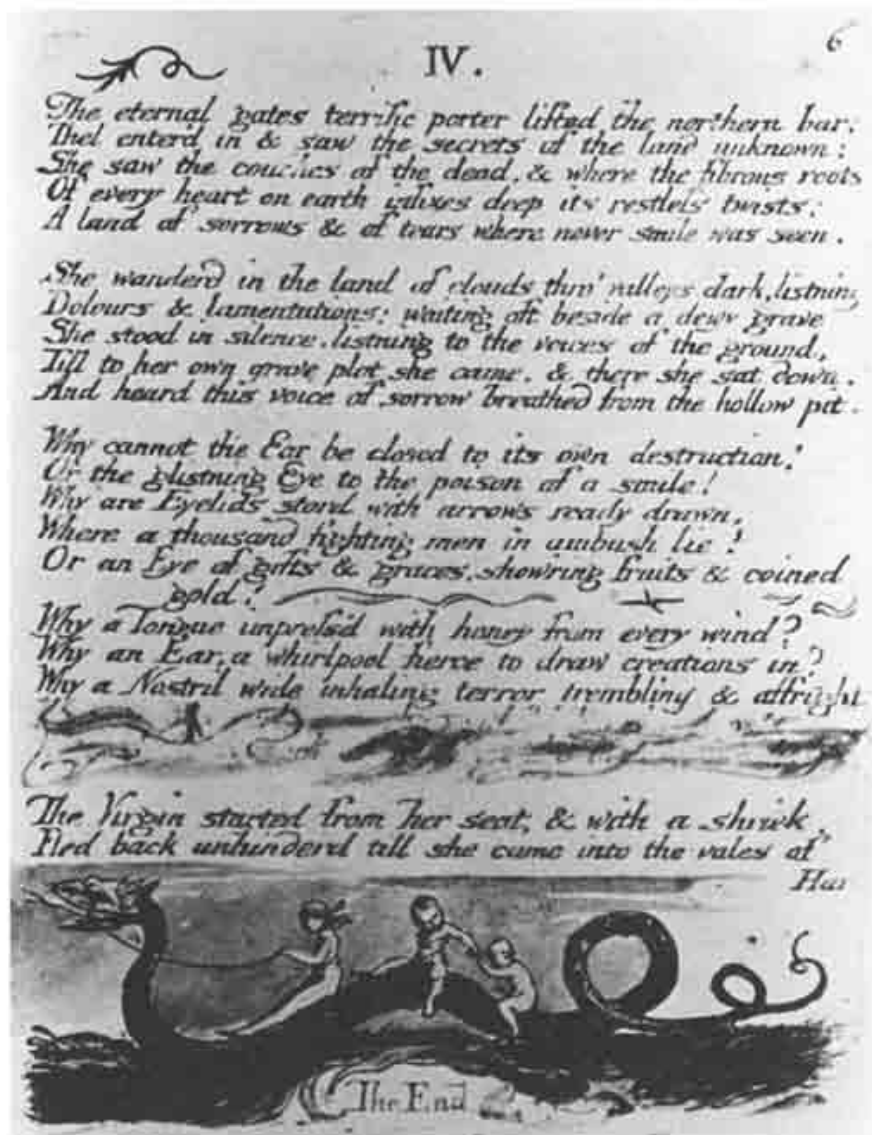 IV.
6
The eternal gates terrific porter lifted the northern bar:
Thel enter'd in & saw the secrets of the land unknown:
She saw the couches of the dead, & where the fibrous roots
Of every heart on earth infixes deep its restless twists:
A land of sorrows & of tears where never smile was seen.
She wanderd in the land of clouds thro' valleys dark, listning
Dolours & lamentations: waiting oft beside a dewy grave
She stood in silence, listning to the voices of the ground,
Till to her own grave plot she came, & there she sat down.
And heard this voice of sorrow breathed from the hollow pit.
Why cannot the Ear be closed to its own destruction?
Or the glistning Eye to the poison of a smile!
Why are Eyelids stord with arrows ready drawn,
Where a thousand fighting men in ambush lie?
Or an Eye of gifts & graces, showring fruits & coined
gold!
Why a Tongue impress'd with honey from every wind?
Why an Ear, a whirlpool fierce to draw creations in?
Why a Nostril wide inhaling terror trembling & affright
The Virgin started from her seat, & with a shriek,
Fled back unhinderd till she came into the vales of
Har
The End